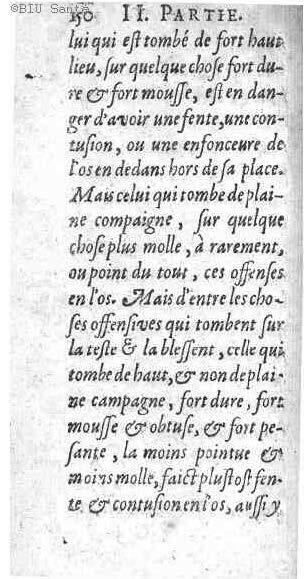 ©BIU Santé
150 II. PARTIE.
lui qui eſt tombé de fort haut
lieu, ſur quelque choſe fort du-
re & fort mouſſe, eſt en dan-
ger d'avoir une fente, une con-
tuſion, ou une enfonceure de
l'os en dedans hors de ſa place.
Mais celui qui tombe de plai-
ne compaigne, ſur quelque
choſe plus molle, à rarement,
ou point du tout, ces offenſes
en l'os. Mais d'entre les cho-
ſes offenſives qui tombent ſur
la teſte & la bleſſent, celle qui
tombe de haut, & non de plai-
ne campagne, fort dure, fort
mouſſe & obtuſe, & fort pe-
ſante, la moins pointue &
moins molle, faict pluſtoſt fen-
te & contuſion en l'os, auſſi y